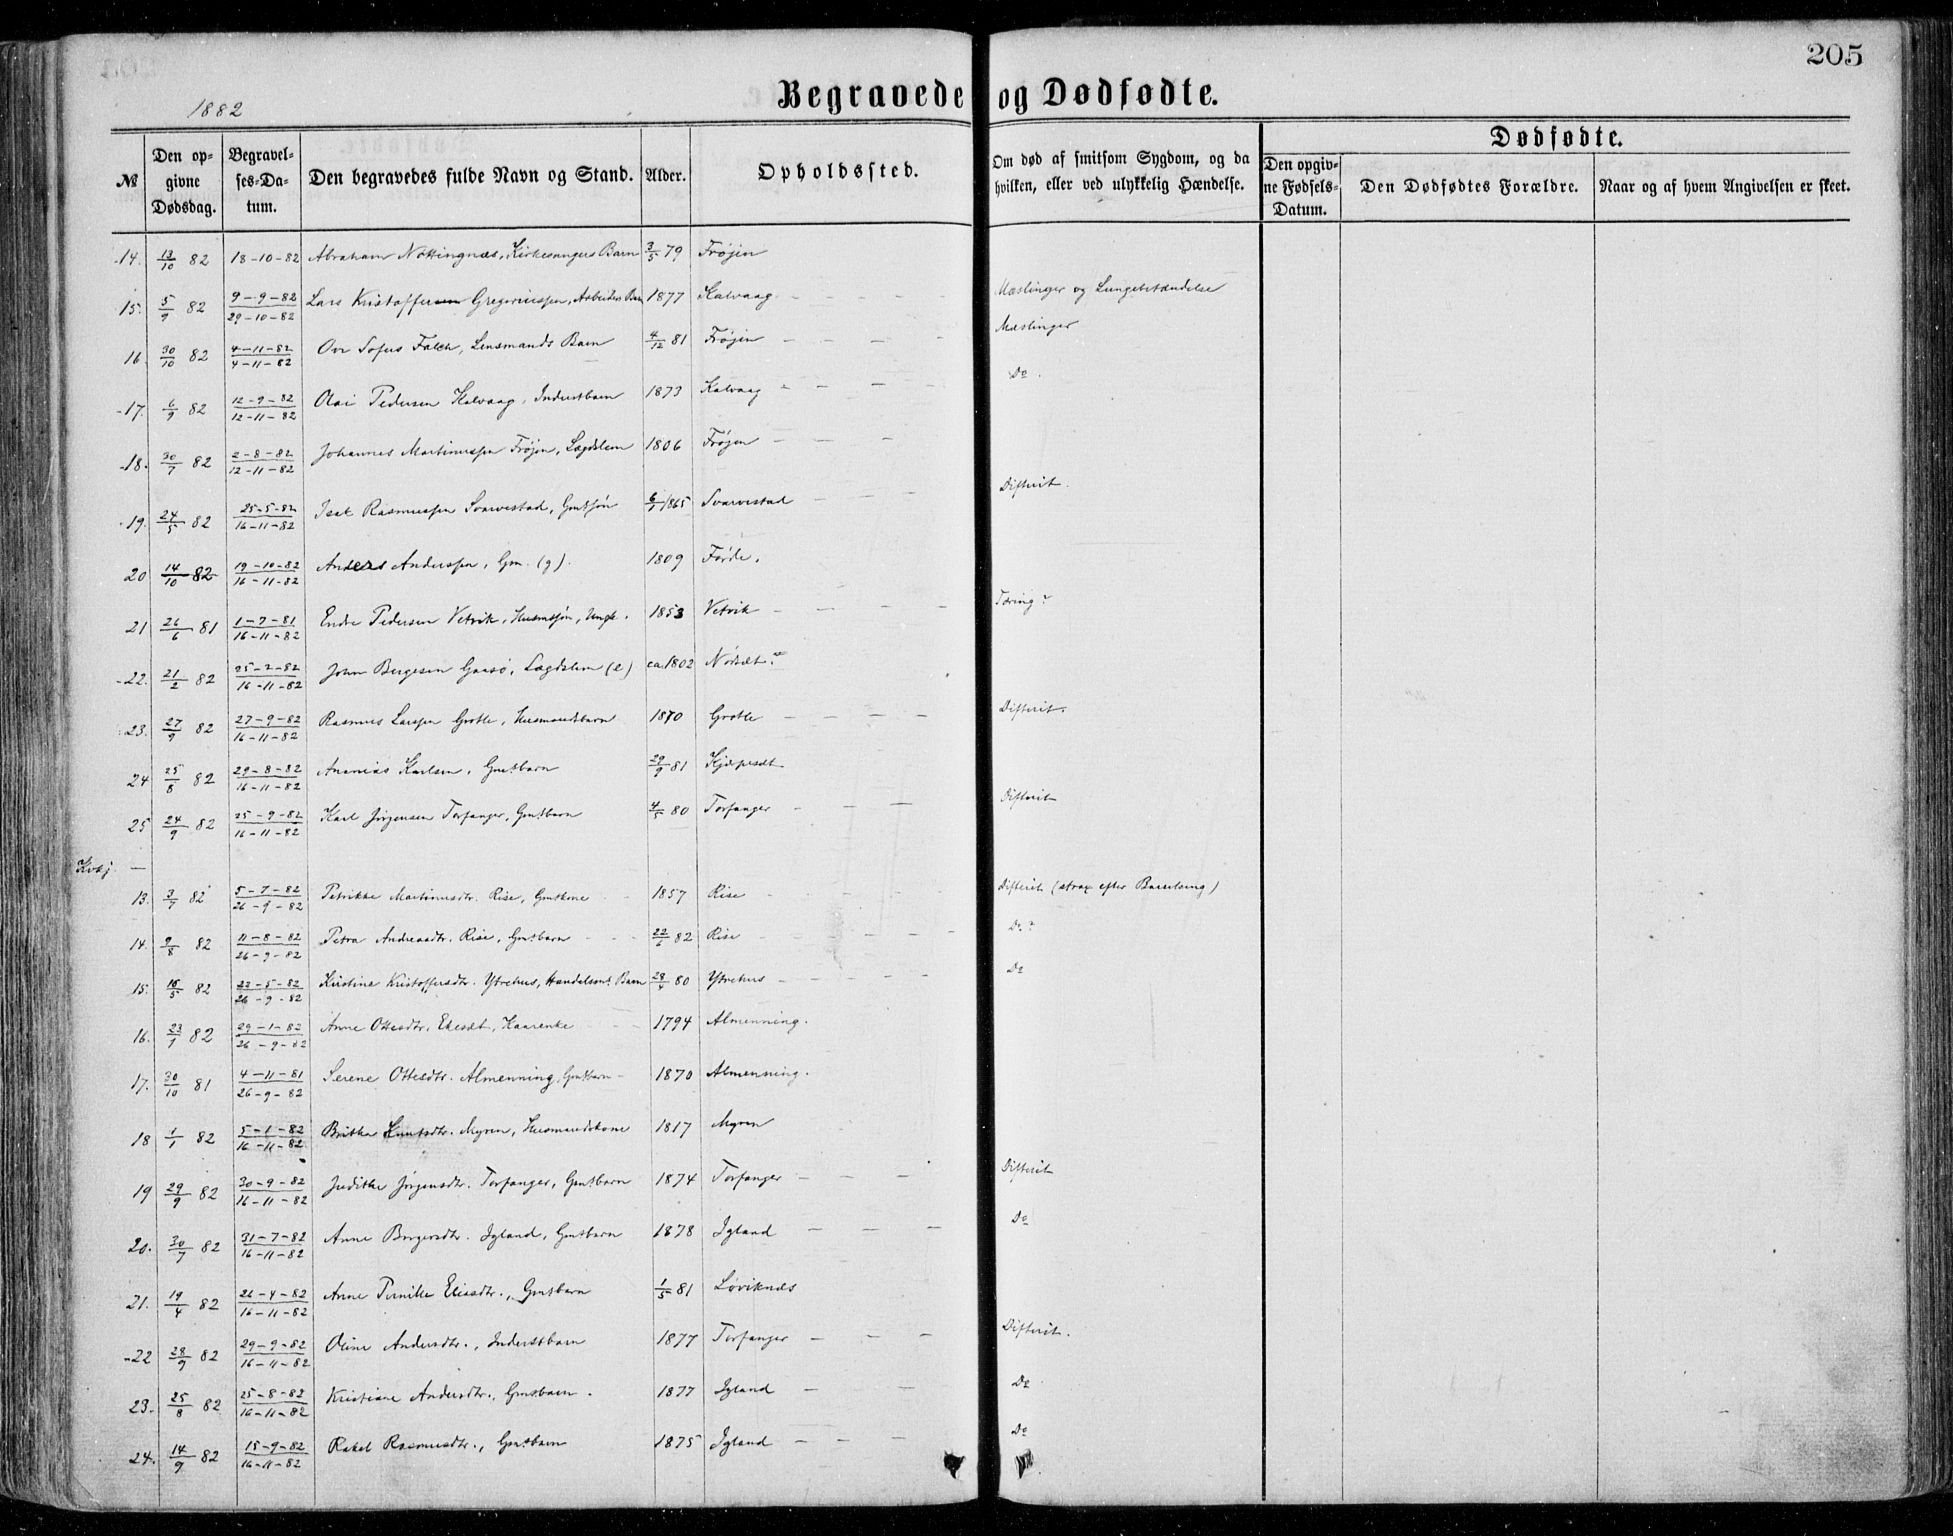 205
1882
Begravede og Dødfødte.
Dødfødte.
№ Den opgivne Dødsdag. Begravelses-Datum. Den begravedes fulde Navn og Stand. Alder. Opholdssted. Om død af smitsom Sygdom, og da hvilken, eller ved ulykkelig Hændelse. Den opgivne Fødsels-Datum. Den Dødfødtes Forældre. Naar og af hvem Angivelsen er skeet.
14. 13/10 82 18-10-82 Abraham Nøttingnæs, Kirkesangers Barn 3/5 79 Frøjen
15. 5/9 82 9-9-82 29-10-82 Lars Kristoffersen Gregeriussen, Arbeiders Barn 1877 Kalvaag - - - - Mæslinger og Lungebetændelse
16. 30/10 82 4-11-82 4-11-82 Ove Sofus Falch, Lensmands Barn 4/12 81 Frøjen - - - - Mæslinger
17. 6/9 82 12-9-82 12-11-82 Olai Pedersen Kalvaag, Inderstbarn 1873 Kalvaag - - - - Do.
18. 30/7 82 2-8-82 12-11-82 Johannes Martinussen Frøjen, Lægdslem 1806 Frøjen - - -
19. 24/5 82 25-5-82 16-11-82 Isak Rasmussen Svarvestad, Gmdsøn 6/1 1865 Svarvestad - - - - Difterit.
20 14/10 82 19-10-82 16-11-82 Anders Anderssen, Gm. (g). 1809 Førde.
21 26/6 81 1-7-81 16-11-82 Endre Pedersen Vetvik, Husmdsøn, Ungk. 1853 Vetvik - - - - Tæring?
22. 21/2 82 25-2-82 16-11-82 John Børgesen Gaasø, Lægdslem (e) ca. 1802 Nødset?
23. 27/9 82 27-9-82 16-11-82 Rasmus Larssen Grotle, Husmandsbarn 1870 Grotle - - - - Difterit.
24 25/8 82 29-8-82 16-11-82 Ananias Karlsen, Gmdsbarn 29/9 81 Kjøpeset
25 24/9 82 25-9-82 16-11-82 Karl Jørgensen Torfanger, Gmdsbarn 4/5 80 Torfanger - - - - Difterit
Kvkj. -
13. 3/7 82 5-7-82 26-9-82 Petrikke Martinusdtr. Rise, Gmdkone 1857 Rise - Difterit (strax efter Barselseng)
14. 9/8 82 11-8-82 26-9-82 Petra Andreasdtr. Rise, Gmdsbarn 22/6 82 Rise - - - - Do.?
15. 18/5 82 22-5-82 26-9-82 Kristine Kristoffersdtr. Ytrehus, Handelsmds Barn 28/4 80 Ytrehus - - - - Do
16. 23/1 82 29-1-82 26-9-82 Anne Ottesdtr. Ekeset, Kaarenke 1794 Almenning.
17. 30/10 81 4-11-81 26-9-82 Serene Ottesdtr. Almenning, Gmdbarn - 1870 Almenning.
18 1/1 82 5-1-82 16-11-82 Brithe Knutsdtr. Myren, Husmandskone 1817 Myren
19 29/9 82 30-9-82 16-11-82 Judithe Jørgensdtr. Torfanger, Gmdsbarn 1874 Torfanger - - - Difterit
20. 30/7 82 31-7-82 16-11-82 Anne Børgesdtr. Igland, Gmdsbarn 1878 Igland - - - Do
21. 19/4 82 26-4-82 16-11-82 Anne Pernille Eliasdtr., Gmdsbarn 1/5 81 Løviknæs
22 28/9 82 29-9-82 16-11-82 Oline Andersdtr., Inderstbarn 1877 Torfanger - - - - Difterit.
23. 25/8 82 25-8-82 16-11-82 Kristiane Andersdtr., Gmdsbarn. 1877 Igland - - Do
24. 14/9 82 15-9-82 16-11-82 Rakel Rasmusdtr., Gmdsbarn 1875 Igland - - - - Do